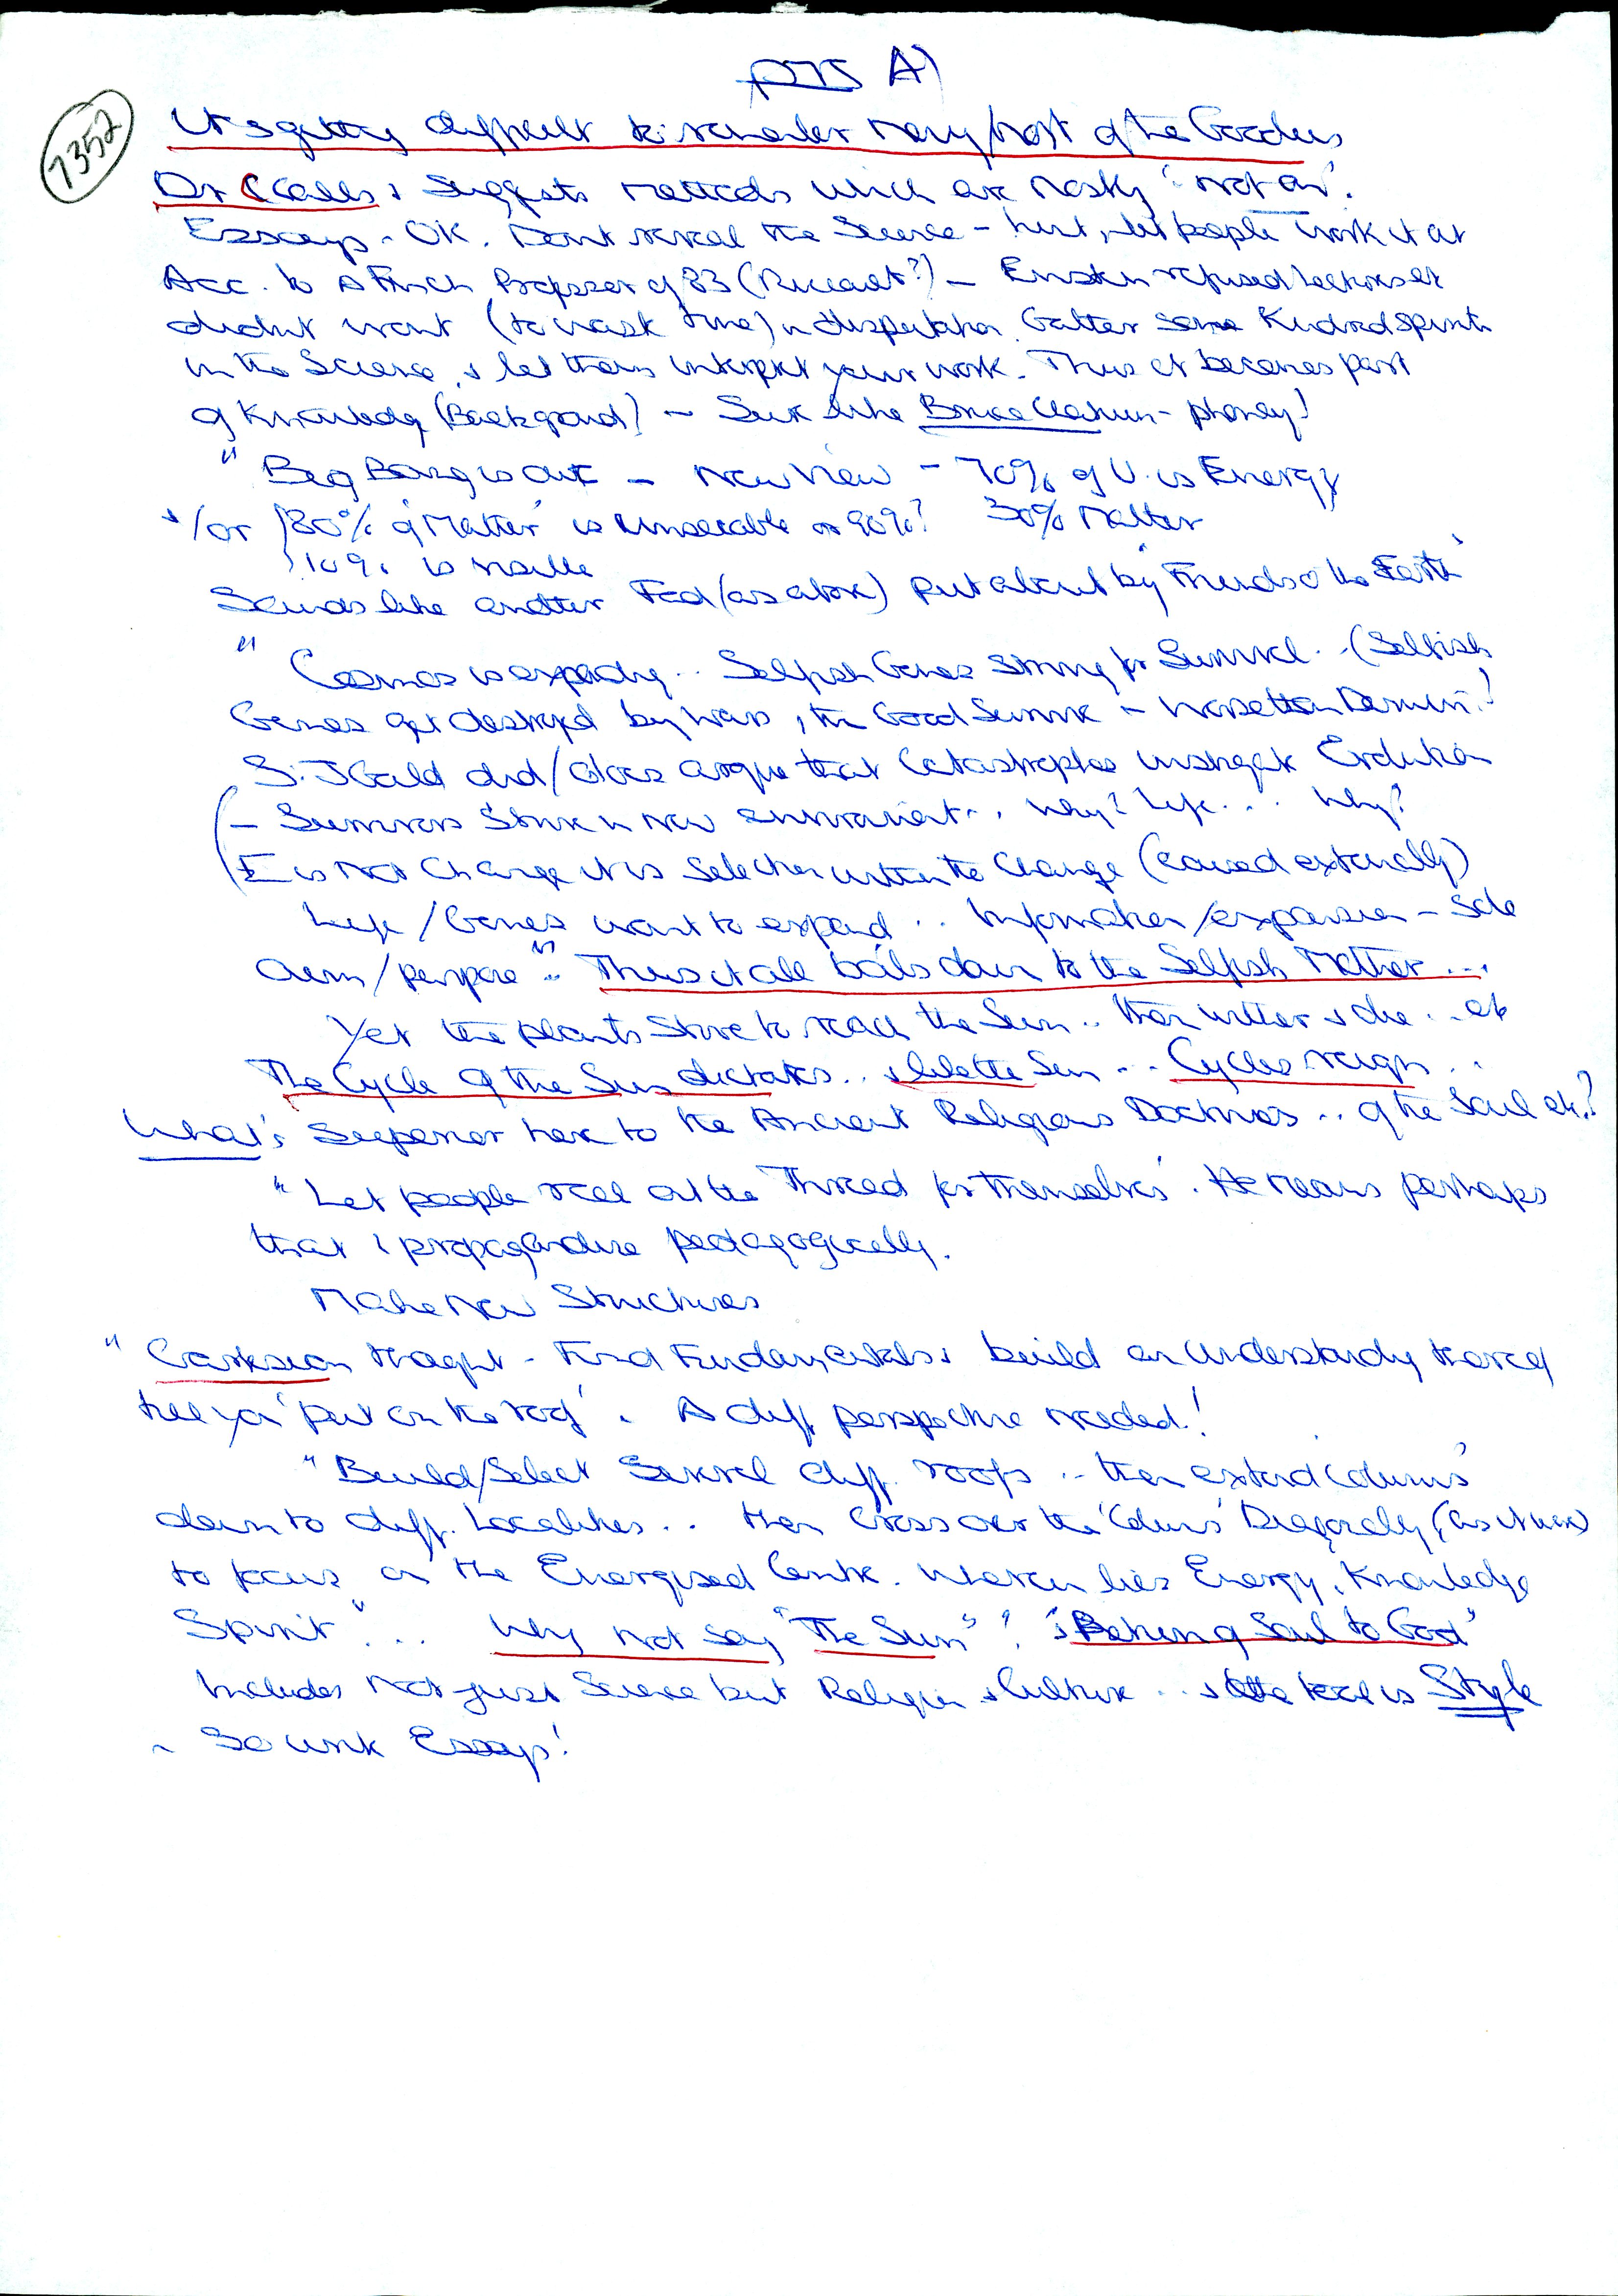 PTS A)
7352
It's getting difficult to remember many/most of the Goodies
Dr C Calls & Suggests methods which are mostly 'not on'.
Essays - OK. Dont reveal the Science - hint, let people work it out
Acc. to a French Professor of 83 (?) - Einstein refused lectures &
didnt want (to waste time) in disputation. Gather some Kindred spirits
in the Science, & let them interpret your work. Thus it becomes part
of Knowledge (Background) - Sux like Bruce - phoney!
" Big Bang is out - New View - 70% of U. is Energy
& /or 80% of 'Matter' is Unseeable or 90%? 30% Matter
10% is visible
Sounds like another Fad (as above) put about by Friends o the Earth'
" Cosmos is expanding .. Selfish Genes strong for Survival .. (Selfish
Genes get destroyed by wars, the Good Survive - worse than Darwin!)
S. J Gould did/does argue that Catastrophes instigate Evolution
- Survivors Strive in new environment .. Why? Life ... Why?
E is Not Change it is Selection within the Change (caused externally)
Life / Genes want to expand .. Information/expansion - Sole
aim/purpose ".. Thus it all boils down to the Selfish Mother ....
Yet the plants strive to reach the Sun .. then wither & die ... etc
The Cycle of the Sun dictates .. & the Sun ... Cycles reign ..
What's Superior here to the Ancient Religious Doctrines .. of the Soul etc?
" Let people reel out the 'Thread for themselves'. He means perhaps
that I propagandise pedagogically.
Make New Structures
" Cartesian thought - Find Fundamentals & build an Understanding thereof
till you 'put on the roof'. A diff perspective needed!
" Build/Select Several diff. roofs .. then extend 'columns'
down to diff. Localities .. then Cross over the 'Columns' Diagonally, (as it were)
to focus on the Energised Centre. Wherein lies Energy, Knowledge
Spirit" ... Why not say "The Sun"? & 'Return of Soul to God'
Includes not just Science but Religion & Culture .. & the tool is Style
- So write Essays!